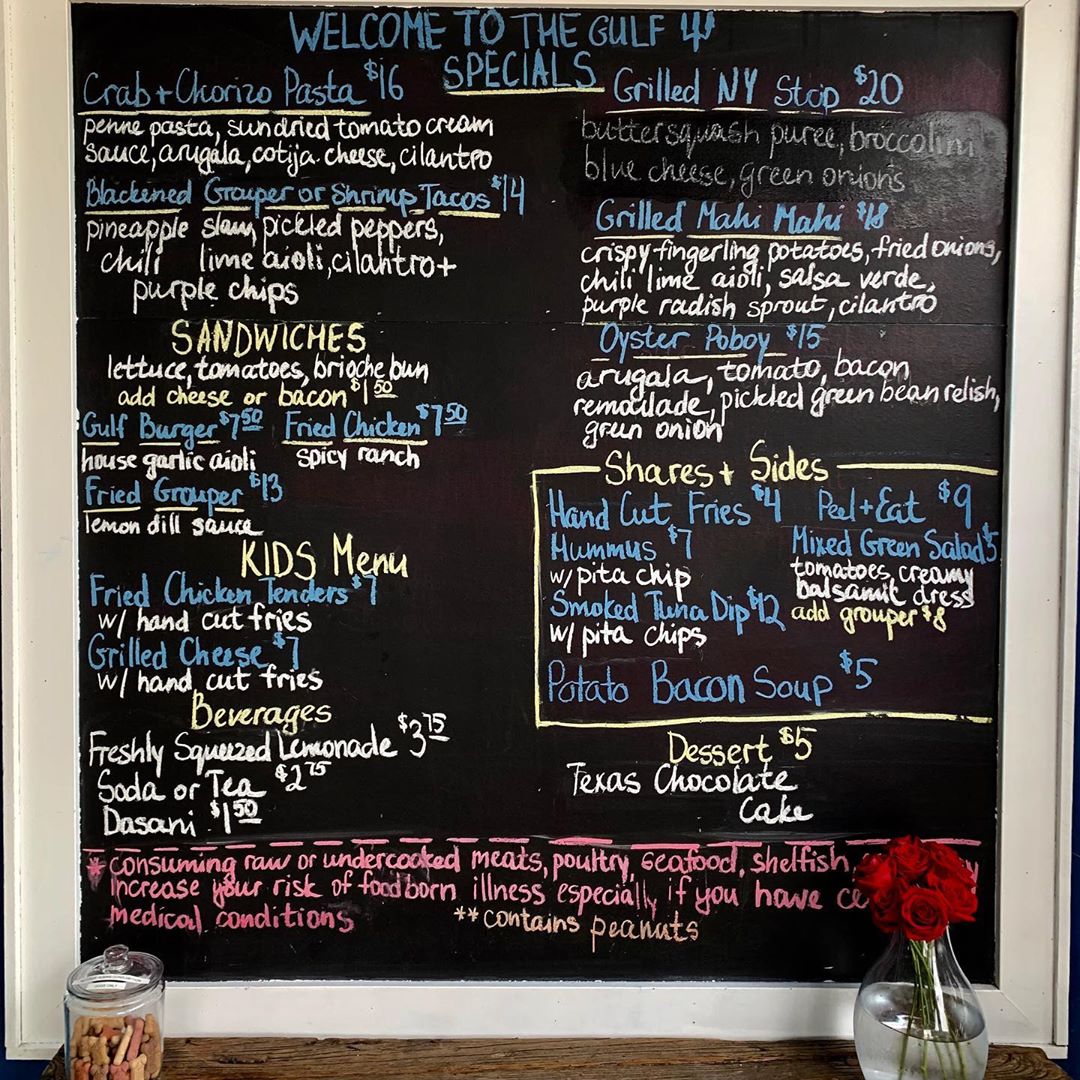 WELCOME TO THE GULF
SPECIALS
Crab + Chorizo Pasta $16
penne pasta, sundried tomato cream
sauce, arugala, cotija cheese, cilantro
Blackened Grouper or Shrimp Tacos $14
pineapple slaw, pickled peppers,
chili lime aioli, cilantro +
purple chips
SANDWICHES
lettuce, tomatoes, brioche bun
add cheese or bacon $1.50
Gulf Burger $7.50 Fried Chicken $7.50
house garlic aioli spicy ranch
Fried Grouper $13
lemon dill sauce
KIDS Menu
Fried Chicken Tenders $7
w/ hand cut fries
Grilled Cheese $7
w/ hand cut fries
Beverages
Freshly Squeezed Lemonade $3.75
Soda or Tea $2.75
Dasani $1.50
Grilled NY Strip $20
buttersquash puree, broccolini
blue cheese, green onions
Grilled Mahi Mahi $18
crispy fingerling potatoes, fried onions,
chili lime aioli, salsa verde,
purple radish sprout, cilantro
Oyster Poboy $15
arugala, tomato, bacon
remoulade, pickled green bean relish,
green onion
Shares + Sides
Hand Cut Fries $4 Peel + Eat $9
Hummus $7
w/ pita chip
Smoked Tuna Dip $12
w/ pita chips
Mixed Green Salad $5
tomatoes, creamy
balsamic dress
add grouper $8
Potato Bacon Soup $5
Dessert $5
Texas Chocolate
Cake
* consuming raw or undercooked meats, poultry, seafood, shelfish,
increase your risk of foodborn illness especially if you have
medical conditions **contains peanuts